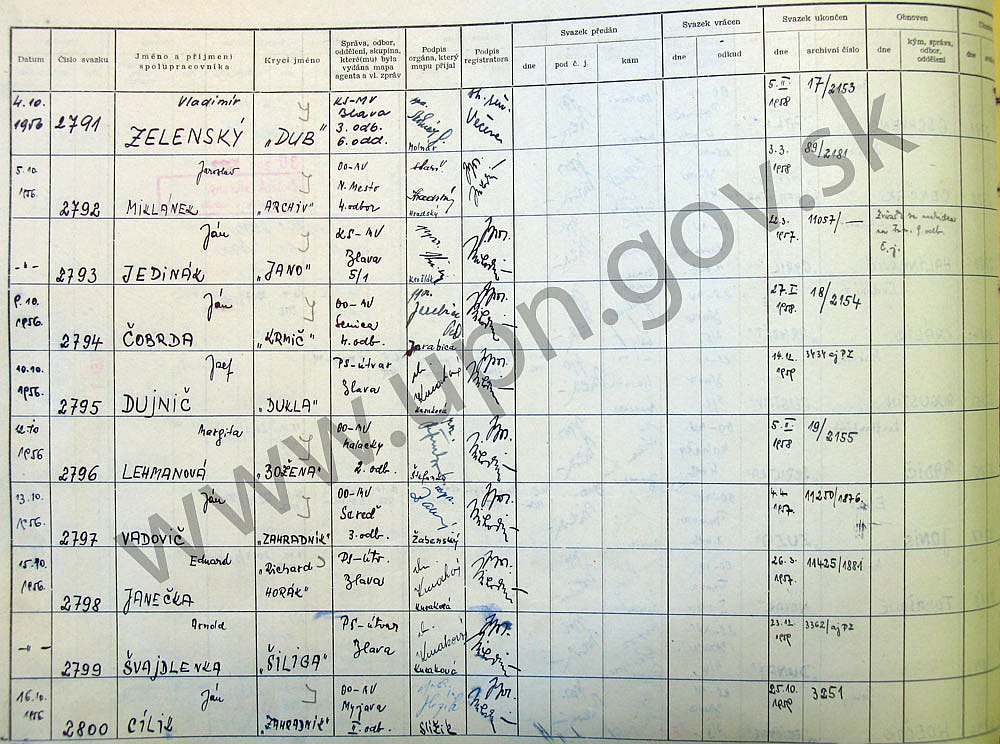 Svazek předán
Svazek vrácen
Svazek ukončen
Obnoven
Datum
Číslo svazku
Jméno a příjmení
spolupracovníka
Krycí jméno
Správa, odbor,
oddělení, skupina,
které(mu) byla
vydána mapa
agenta a vl. zpráv
Podpis
orgána, který
mapu přijal
Podpis
registratora
dne
pod č. j.
kam
dne
odkud
dne
archivní číslo
dne
kým, správa,
odbor,
oddělení
dne
4.10.
1956
2791
Vladimír
ZELENSKÝ
"DUB"
KS-MV
Blava
3. odb.
6. odd.
Molnár
5. II.
1958
17/2153
5.10.
1956.
2792
Jaroslav
MIKLÁNEK
"ARCHIV"
OO-MV
N. Mesto
4. odbor
Hradský
3.3.
1958
89/2181
-"-
2793
Ján
JEDINÁK
"JANO"
KS-MV
Blava
5/1
1957.
11057/—
9. 10.
1956.
2794
Ján
ČOBRDA
"KRMIČ"
OO-MV
Senica
4. odb.
Jarabica
27. I
1958.
18/2154
10.10.
1956.
2795
Jozef
DUJNIČ
"DUKLA"
PS-útvar
Blava
Kuraková
14. 12.
1959
3434 aj PZ
12.10
1956
2796
Margita
LEHMANOVÁ
"BOŽENA"
OO-MV
Malacky
2. odb.
Štefanka
5. II.
1958
19/2155
13.10.
1956.
2797
Ján
VADOVIČ
"ZAHRADNÍK"
OO-MV
Sereď
3. odb.
Žabenský
4.4.
1957.
11250/1876.
15.10.
1956.
2798
Eduard
JANEČKA
"Richard
HORÁK"
PS-útv.
Blava
Kuraková
26.3.
1957.
11425/1881
-"-
2799
Arnold
ŠVAJDLENKA
"ŠILIGA"
PS-útvar
Blava
Kuraková
23.12.
1959
3362/aj PZ
16.10.
1956
2800
Ján
CÍLIK
"ZAHRADNÍK"
OO-MV
Myjava
II. odb.
Sližik
25.10.
1959
3251
www.upn.gov.sk